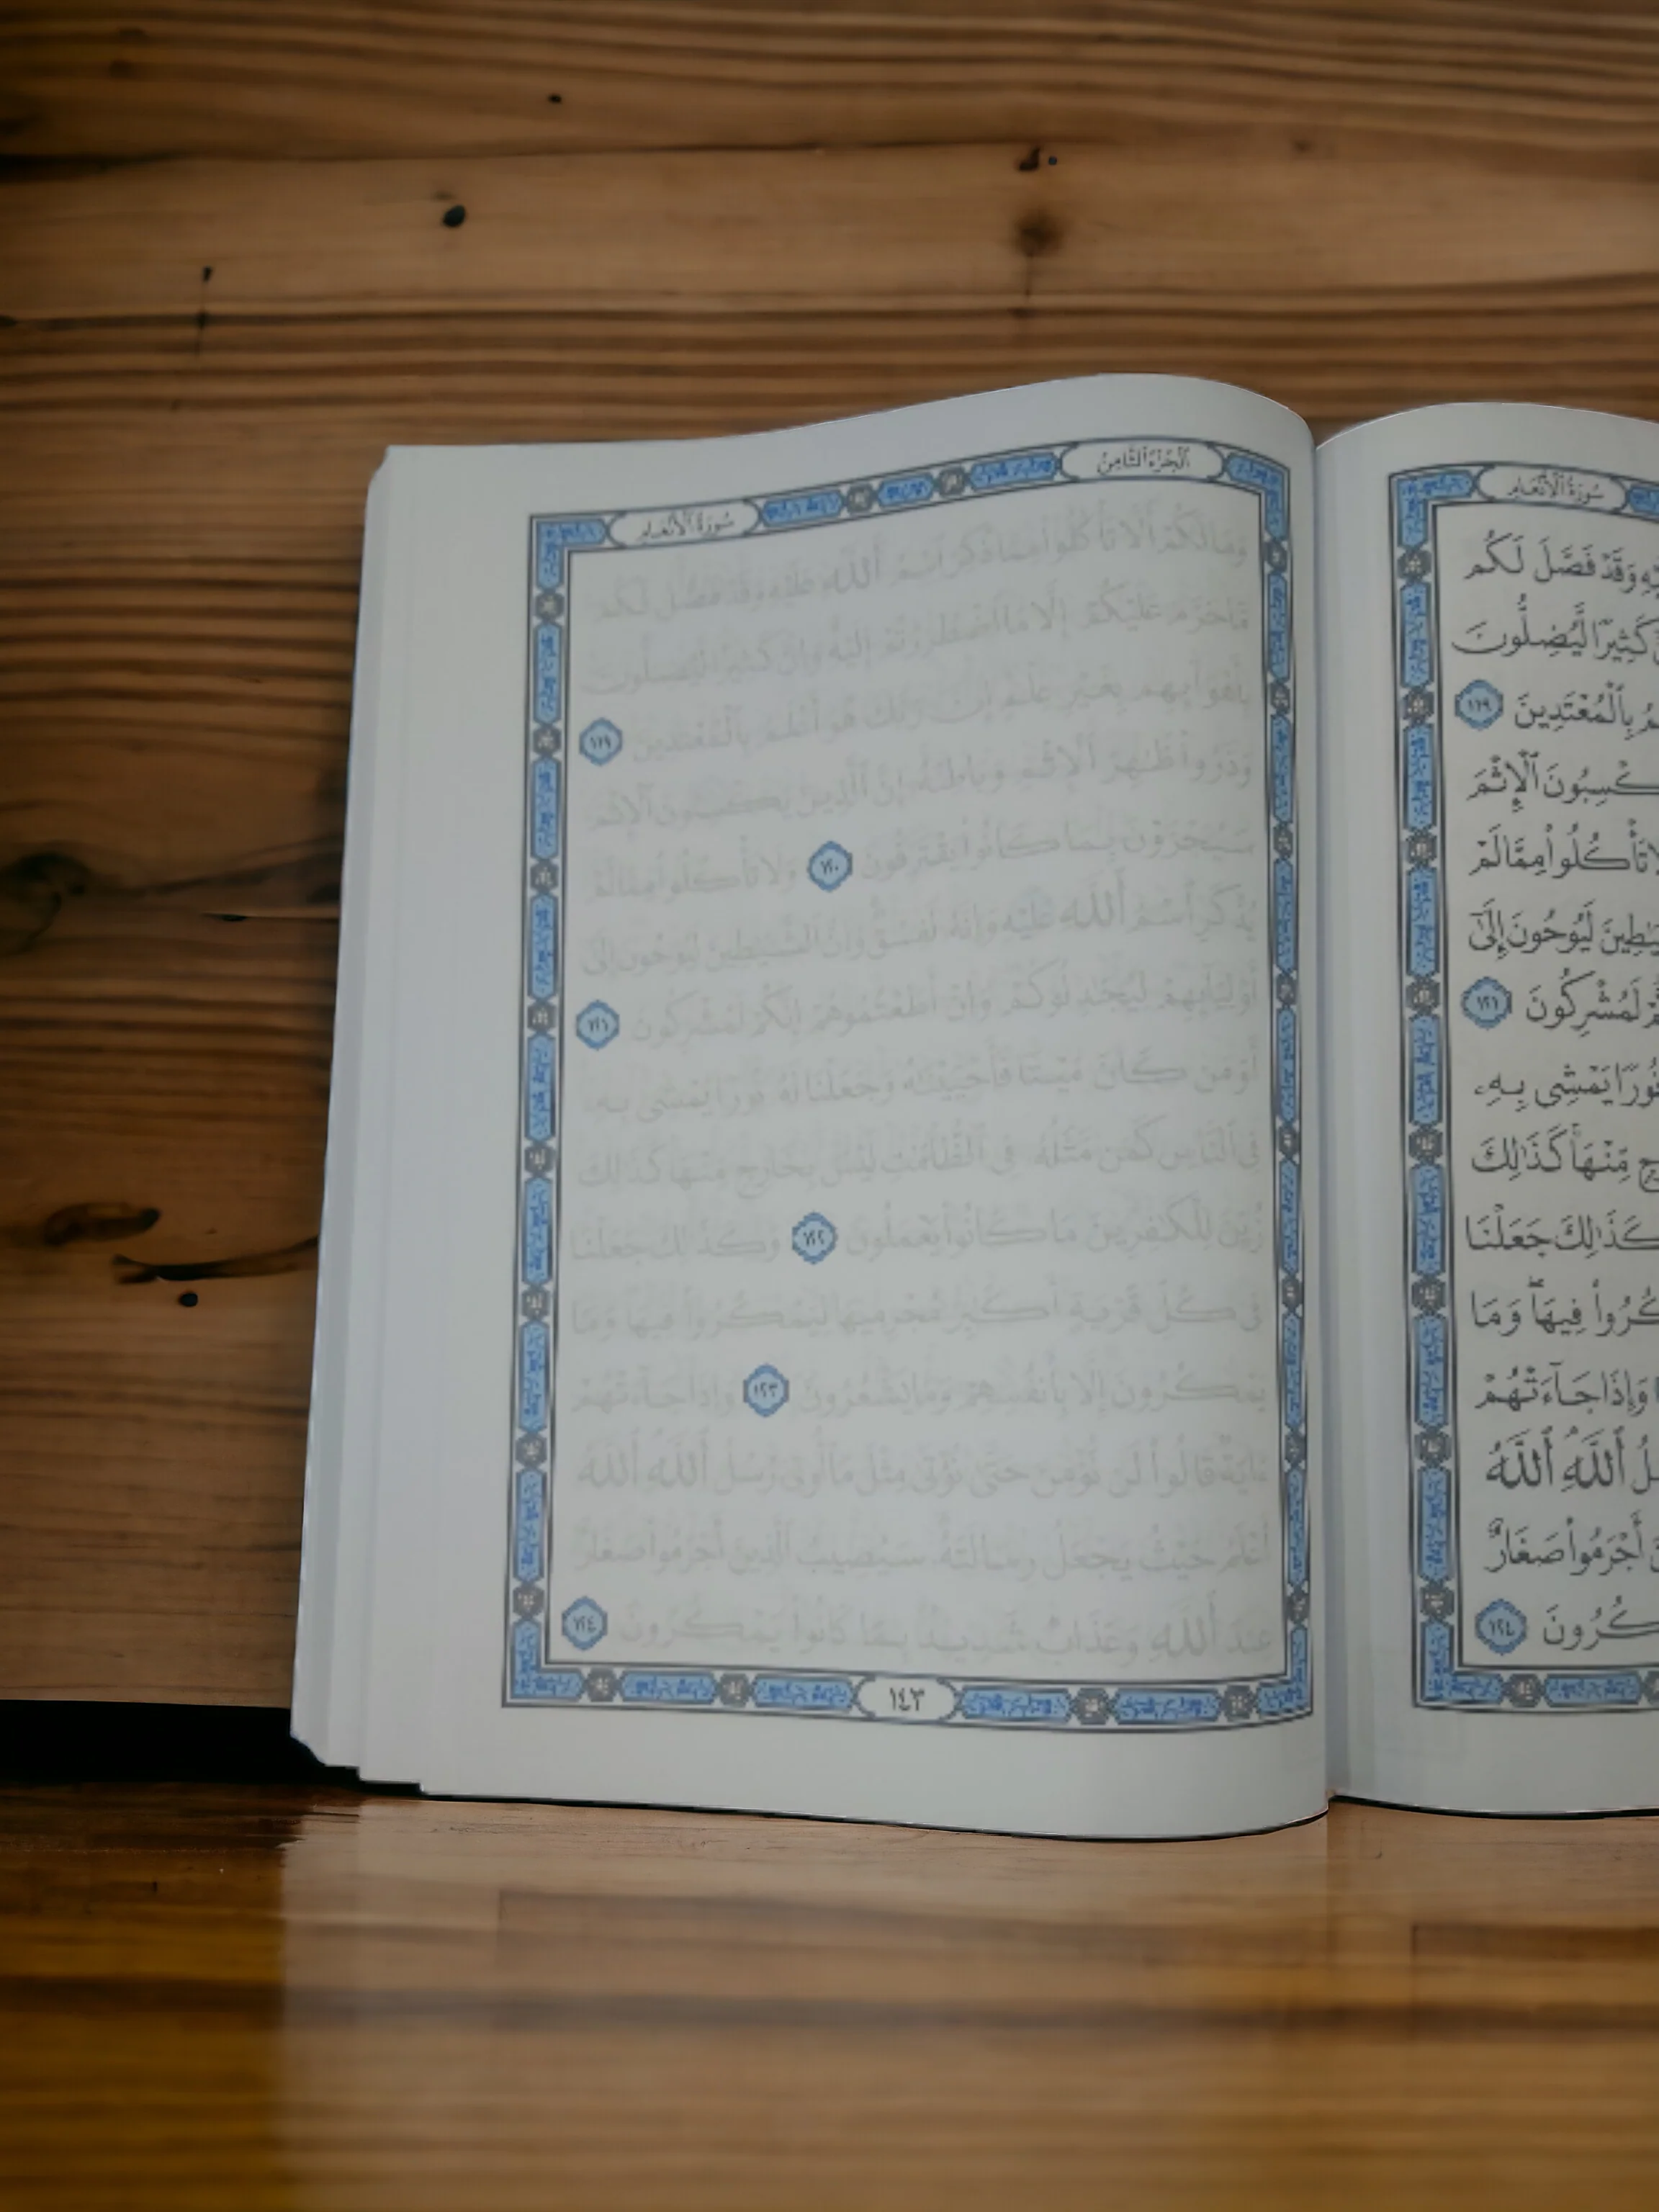 سُورَةُ ٱلْأَنْعَامِ
وَقَدْ فَصَّلَ لَكُم
كَثِيرًا لَّيُضِلُّونَ
بِٱلْمُعْتَدِينَ ١١٩
ٱلْإِثْمَ
تَأْكُلُوا۟ مِمَّا لَمْ
لَيُوحُونَ إِلَىٰٓ
لَمُشْرِكُونَ ١٢١
نُورًا يَمْشِى بِهِۦ
مِّنْهَا ۚ كَذَٰلِكَ
كَذَٰلِكَ جَعَلْنَا
فِيهَا ۖ وَمَا
وَإِذَا جَآءَتْهُمْ
ٱللَّهِ ۘ ٱللَّهُ
أَجْرَمُوا۟ صَغَارٌ
١٢٤
ٱلْجُزْءُ ٱلثَّامِنُ سُورَةُ ٱلْأَنْعَامِ
وَمَا لَكُمْ أَلَّا تَأْكُلُوا۟ مِمَّا ذُكِرَ ٱسْمُ ٱللَّهِ عَلَيْهِ وَقَدْ فَصَّلَ لَكُم
مَّا حَرَّمَ عَلَيْكُمْ إِلَّا مَا ٱضْطُرِرْتُمْ إِلَيْهِ ۗ وَإِنَّ كَثِيرًا لَّيُضِلُّونَ
بِأَهْوَآئِهِم بِغَيْرِ عِلْمٍ ۗ إِنَّ رَبَّكَ هُوَ أَعْلَمُ بِٱلْمُعْتَدِينَ ١١٩
وَذَرُوا۟ ظَٰهِرَ ٱلْإِثْمِ وَبَاطِنَهُۥٓ ۚ إِنَّ ٱلَّذِينَ يَكْسِبُونَ ٱلْإِثْمَ
سَيُجْزَوْنَ بِمَا كَانُوا۟ يَقْتَرِفُونَ ١٢٠ وَلَا تَأْكُلُوا۟ مِمَّا لَمْ
يُذْكَرِ ٱسْمُ ٱللَّهِ عَلَيْهِ وَإِنَّهُۥ لَفِسْقٌ ۗ وَإِنَّ ٱلشَّيَٰطِينَ لَيُوحُونَ إِلَىٰٓ
أَوْلِيَآئِهِمْ لِيُجَٰدِلُوكُمْ ۖ وَإِنْ أَطَعْتُمُوهُمْ إِنَّكُمْ لَمُشْرِكُونَ ١٢١
أَوَمَن كَانَ مَيْتًا فَأَحْيَيْنَٰهُ وَجَعَلْنَا لَهُۥ نُورًا يَمْشِى بِهِۦ
فِى ٱلنَّاسِ كَمَن مَّثَلُهُۥ فِى ٱلظُّلُمَٰتِ لَيْسَ بِخَارِجٍ مِّنْهَا ۚ كَذَٰلِكَ
زُيِّنَ لِلْكَٰفِرِينَ مَا كَانُوا۟ يَعْمَلُونَ ١٢٢ وَكَذَٰلِكَ جَعَلْنَا
فِى كُلِّ قَرْيَةٍ أَكَٰبِرَ مُجْرِمِيهَا لِيَمْكُرُوا۟ فِيهَا ۖ وَمَا
يَمْكُرُونَ إِلَّا بِأَنفُسِهِمْ وَمَا يَشْعُرُونَ ١٢٣ وَإِذَا جَآءَتْهُمْ
ءَايَةٌ قَالُوا۟ لَن نُّؤْمِنَ حَتَّىٰ نُؤْتَىٰ مِثْلَ مَآ أُوتِىَ رُسُلُ ٱللَّهِ ۘ ٱللَّهُ
أَعْلَمُ حَيْثُ يَجْعَلُ رِسَالَتَهُۥ ۗ سَيُصِيبُ ٱلَّذِينَ أَجْرَمُوا۟ صَغَارٌ
عِندَ ٱللَّهِ وَعَذَابٌ شَدِيدٌۢ بِمَا كَانُوا۟ يَمْكُرُونَ ١٢٤
١٤٣